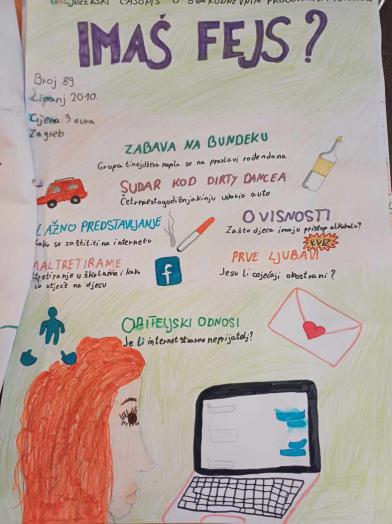 ČASOPIS O SVAKODNEVNIM
IMAŠ FEJS?
Broj 89
Lipanj 2010.
Cijena 3 eura
Zagreb
ZABAVA NA BUNDEKU
Grupa tinejdžera napila se na proslavi rođendana
SUDAR KOD DIRTY DANCEA
Četrnaestogodišnjakinju udario auto
LAŽNO PREDSTAVLJANJE
kako se zaštititi na internetu
O VISNOSTI
Zašto djeca imaju pristup alkoholu?
KVIZ
MALTRETIRAME
u školama i kako
utječe na djecu
PRVE LJUBAVI
Jesu li osjećaji obostrani?
f
OBITELJSKI ODNOSI
Je li internet stvarno neprijatelj?